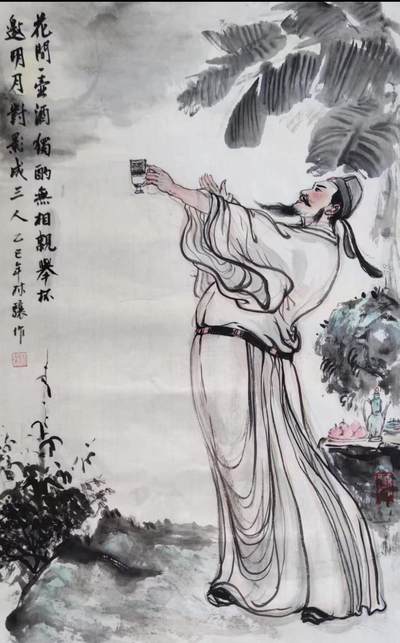 花間一壺酒獨酌無相親舉杯
邀明月對影成三人 乙巳年 作